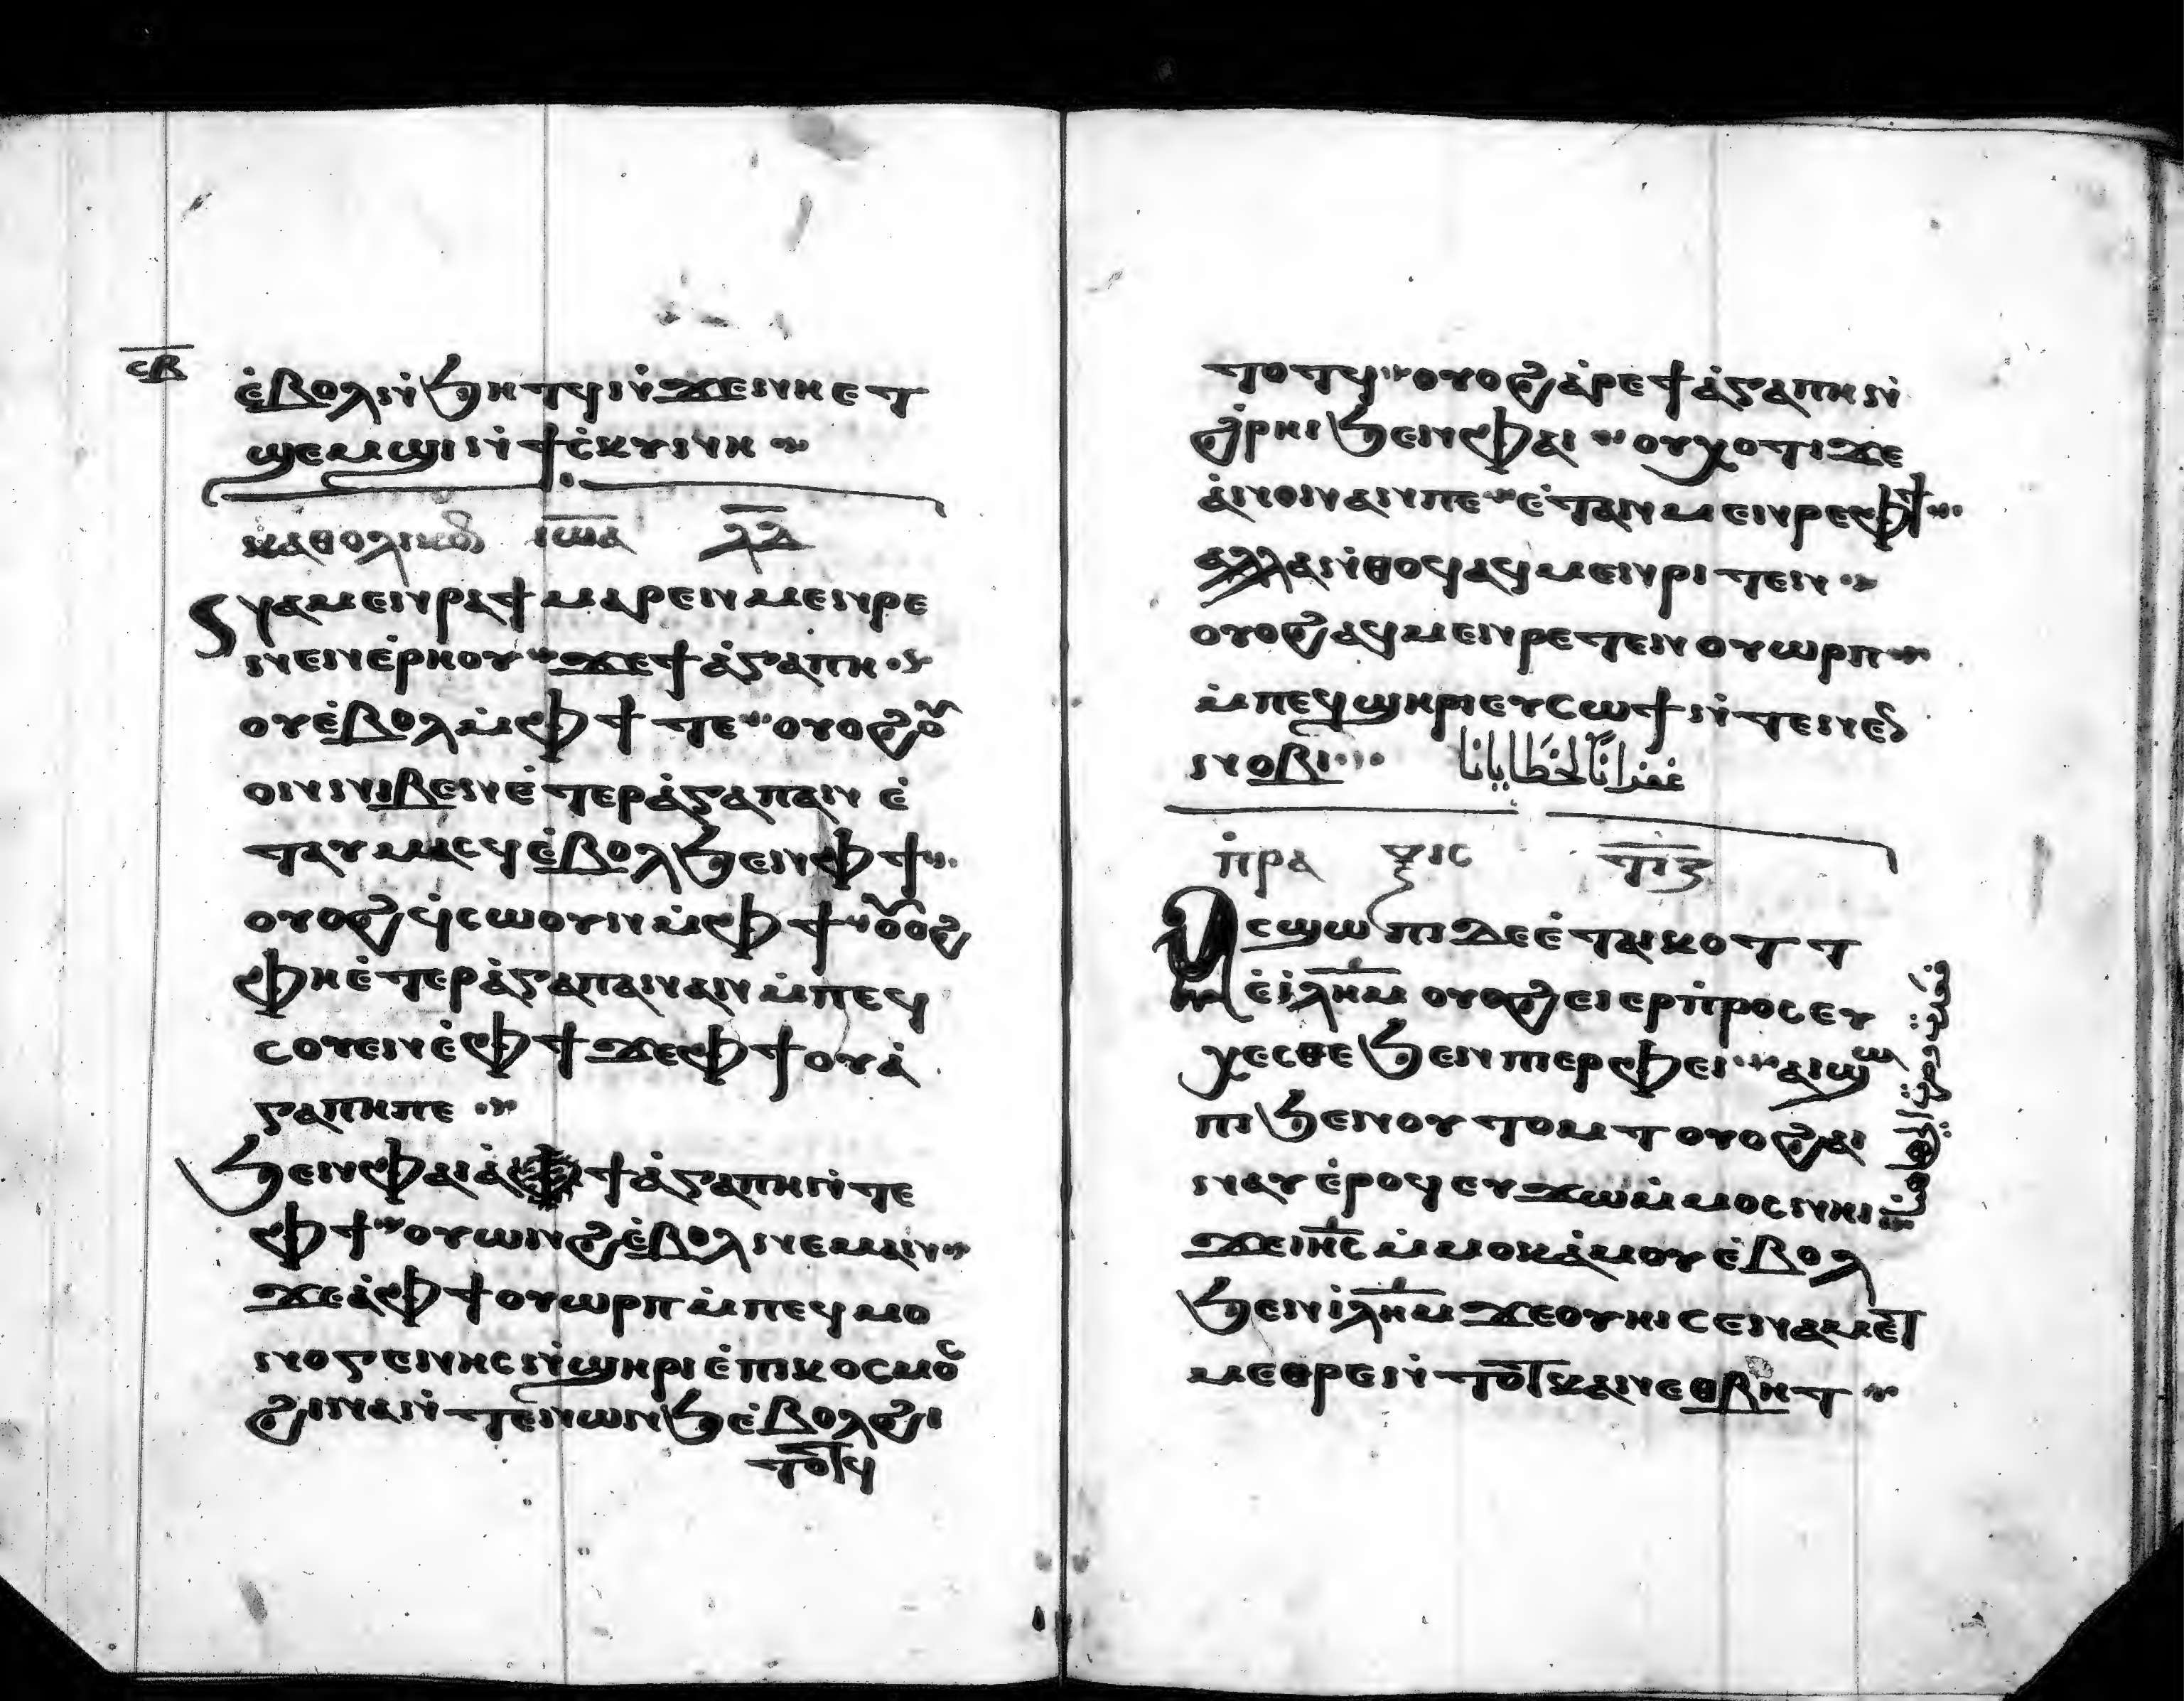 ⲥⲃ
ⲉ̀ⲃⲟⲗⲛ̀ϧⲏⲧϥⲛ̀ϫⲉⲛⲏⲉⲧ
ϣⲉⲙϣⲓⲛ̀ϯⲥ̀ⲕⲩⲛⲏ
ⲕⲁⲑⲟⲗⲓⲕⲟⲛ ⲓⲱⲁ ⲗⲇ
ⲛⲁⲙⲉⲛⲣⲁϯ ⲙⲁⲣⲉⲛⲙⲉⲛⲣⲉ
ⲛⲉⲛⲉ̀ⲣⲏⲟⲩ ϫⲉϯⲁ̀ⲅⲁⲡⲏ
ⲟⲩⲉ̀ⲃⲟⲗⲙ̀ⲫϯⲧⲉ ⲟⲩⲟϩⲟⲩ
ⲟⲛⲛⲓⲃⲉⲛⲉ̀ⲧⲉⲣⲁ̀ⲅⲁⲡⲁⲛ ⲉ̀
ⲧⲁⲩⲙⲁⲥϥⲉ̀ⲃⲟⲗϧⲉⲛⲫϯ
ⲟⲩⲟϩϥ̀ⲥⲱⲟⲩⲛⲙ̀ⲫϯ ⲟⲩⲟϩ
ⲫⲏⲉ̀ⲧⲉⲣⲁ̀ⲅⲁⲡⲁⲛⲁⲛⲙ̀ⲡⲉϥ
ⲥⲟⲩⲉⲛⲉ̀ⲫϯϫⲉⲫϯⲟⲩⲁ̀
ⲅⲁⲡⲏⲡⲉ
ϧⲉⲛⲫⲁⲓⲁ̀ ϯⲁ̀ⲅⲁⲡⲏⲛ̀ⲧⲉ
ⲫϯ ⲟⲩⲱⲛϩⲉ̀ⲃⲟⲗⲛⲉⲙⲁⲛ
ϫⲉⲁ̀ⲫϯⲟⲩⲱⲣⲡⲙ̀ⲡⲉϥⲙⲟ
ⲛⲟⲅⲉⲛⲏⲥⲛ̀ϣⲏⲣⲓⲉ̀ⲡⲓⲕⲟⲥⲙⲟⲥ
ϩⲓⲛⲁⲛ̀ⲧⲉⲛⲱⲛϧⲉ̀ⲃⲟⲗϩⲓ
ⲧⲟⲧϥ
ⲧⲟⲧϥ ⲟⲩⲟϩⲁ̀ⲣⲉϯⲁ̀ⲅⲁⲡⲏⲛ̀
ϩ̀ⲣⲏⲓϧⲉⲛⲫⲁⲓ ⲟⲩⲭⲟⲧⲓϫⲉ
ⲁ̀ⲛⲟⲛⲁⲛⲡⲉ ⲉ̀ⲧⲁⲛⲙⲉⲛⲣⲉⲫϯ
ⲁⲗⲗⲁⲛ̀ⲑⲟϥⲁϥⲙⲉⲛⲣⲓⲧⲉⲛ
ⲟⲩⲟϩⲁϥⲙⲉⲛⲣⲉⲧⲉⲛⲟⲩⲱⲣⲡ
ⲙ̀ⲡⲉϥϣⲏⲣⲓⲉⲩⲥⲱϯⲛ̀ⲧⲉⲛⲉⲛ
ⲛⲟⲃⲓ غفرانا لخطايانا
ⲡ̀ⲣⲁⲝⲓⲥ ⲧⲓⲍ
ⲁⲥϣⲱⲡⲓⲇⲉⲉ̀ⲧⲁⲓⲕⲟⲧⲧ
ⲉ̀ⲓ̀ⲗⲏⲙ ⲟⲩⲟϩⲉⲓⲉⲣⲡ̀ⲣⲟⲥⲉⲩ
ⲭⲉⲥⲑⲉϧⲉⲛⲡⲓⲉⲣⲫⲉⲓ ⲁⲓϣⲱ
ⲡⲓϧⲉⲛⲟⲩⲧⲟⲙⲧⲟⲩⲟϩⲁⲓ
ⲛⲁⲩⲉ̀ⲣⲟϥⲉⲩϫⲱⲙ̀ⲙⲟⲥⲛⲏⲓ
ϫⲉⲓⲏⲥⲙ̀ⲙⲟⲕⲁ̀ⲙⲟⲩⲉ̀ⲃⲟⲗ
ϧⲉⲛⲓ̀ⲗⲏⲙϫⲉⲟⲩⲏⲓⲥⲉⲛⲁⲙⲉⲧ
ⲙⲉⲑⲣⲉⲛ̀ⲧⲟⲧⲕⲁⲛⲉⲑⲃⲏⲧ